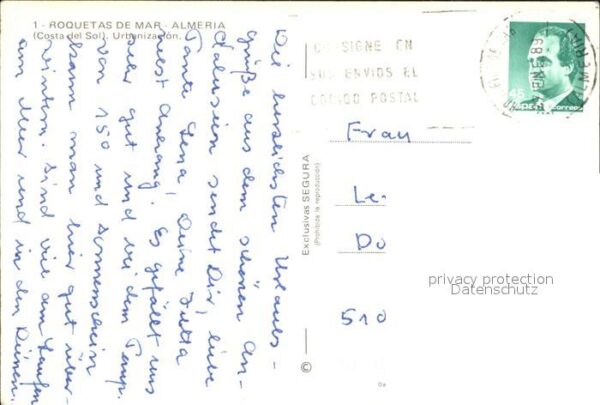 1 - ROQUETAS DE MAR - ALMERIA
(Costa del Sol). Urbanización.
Die herzlichsten Urlaubs-
grüße aus dem schönen An-
dalusien sendet Dir, liebe
Tante Lena, Deine Jutta
nebst Anhang. Es gefällt uns
sehr gut und bei dem Temp.
von 150 und Sonnenschein
kann man hier gut über-
wintern. Sind viel am Laufen
am Meer und in den Dünen.
Exclusivas SEGURA
(Prohibida la reproducción)
©
CONSIGNE EN
SUS ENVIOS EL
CODIGO POSTAL
45
España Correos
Frau
Le
Do
510
privacy protection
Datenschutz